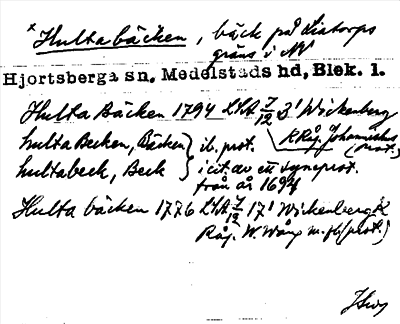 *Hultabäcken, bäck på Listorps
gräns i NV
Hjortsberga sn, Medelstads hd, Blek. l.
Hulta Bäcken 1794 LSA 7/12 3' Wickenberg
hulta Becken, Bäcken } ib. prot. Johannishus (prot.)
hultabeck, Beck } i cit. av ett syneprot.
från år 1694
Hulta bäcken 1776 LSA 7/12 17' Wickenberg K
Råg. W. Wång m.fl. (prot.)